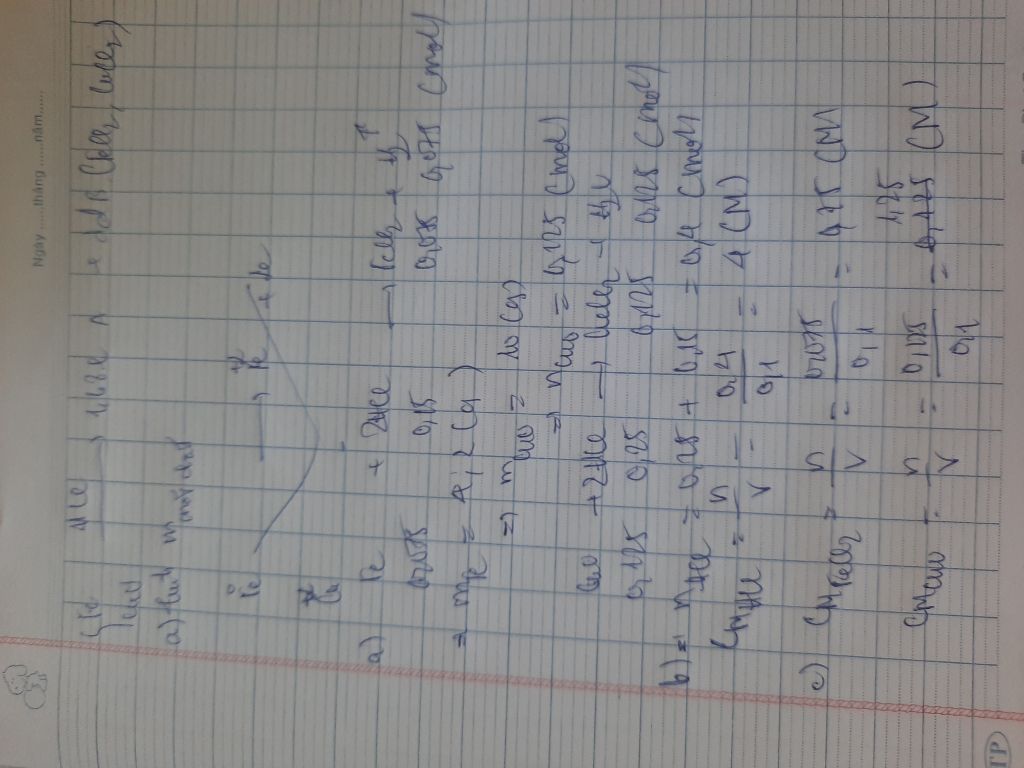 Ngày ...... tháng ...... năm ......
{ Fe HCl → 1,68l + dd A (FeCl2, CuCl2)
CuO
a) tính m mỗi chất
Fe → Fe + 2e
Cu
a) Fe + 2HCl → FeCl2 + H2↑
0,075 0,15 0,075 0,075 (mol)
⇒ mFe = 4,2 (g)
⇒ mCuO = 10 (g)
⇒ nCuO = 0,125 (mol)
CuO + 2HCl → CuCl2 + H2O
0,125 0,25 0,125 0,125 (mol)
b) ⇒ nHCl = 0,25 + 0,15 = 0,4 (mol)
CMHCl = n/V = 0,4/0,1 = 4 (M)
c) CMFeCl2 = n/V = 0,075/0,1 = 0,75 (M)
CMCuO = n/V = 0,125/0,1 = 0,125 1,25 (M)
TP